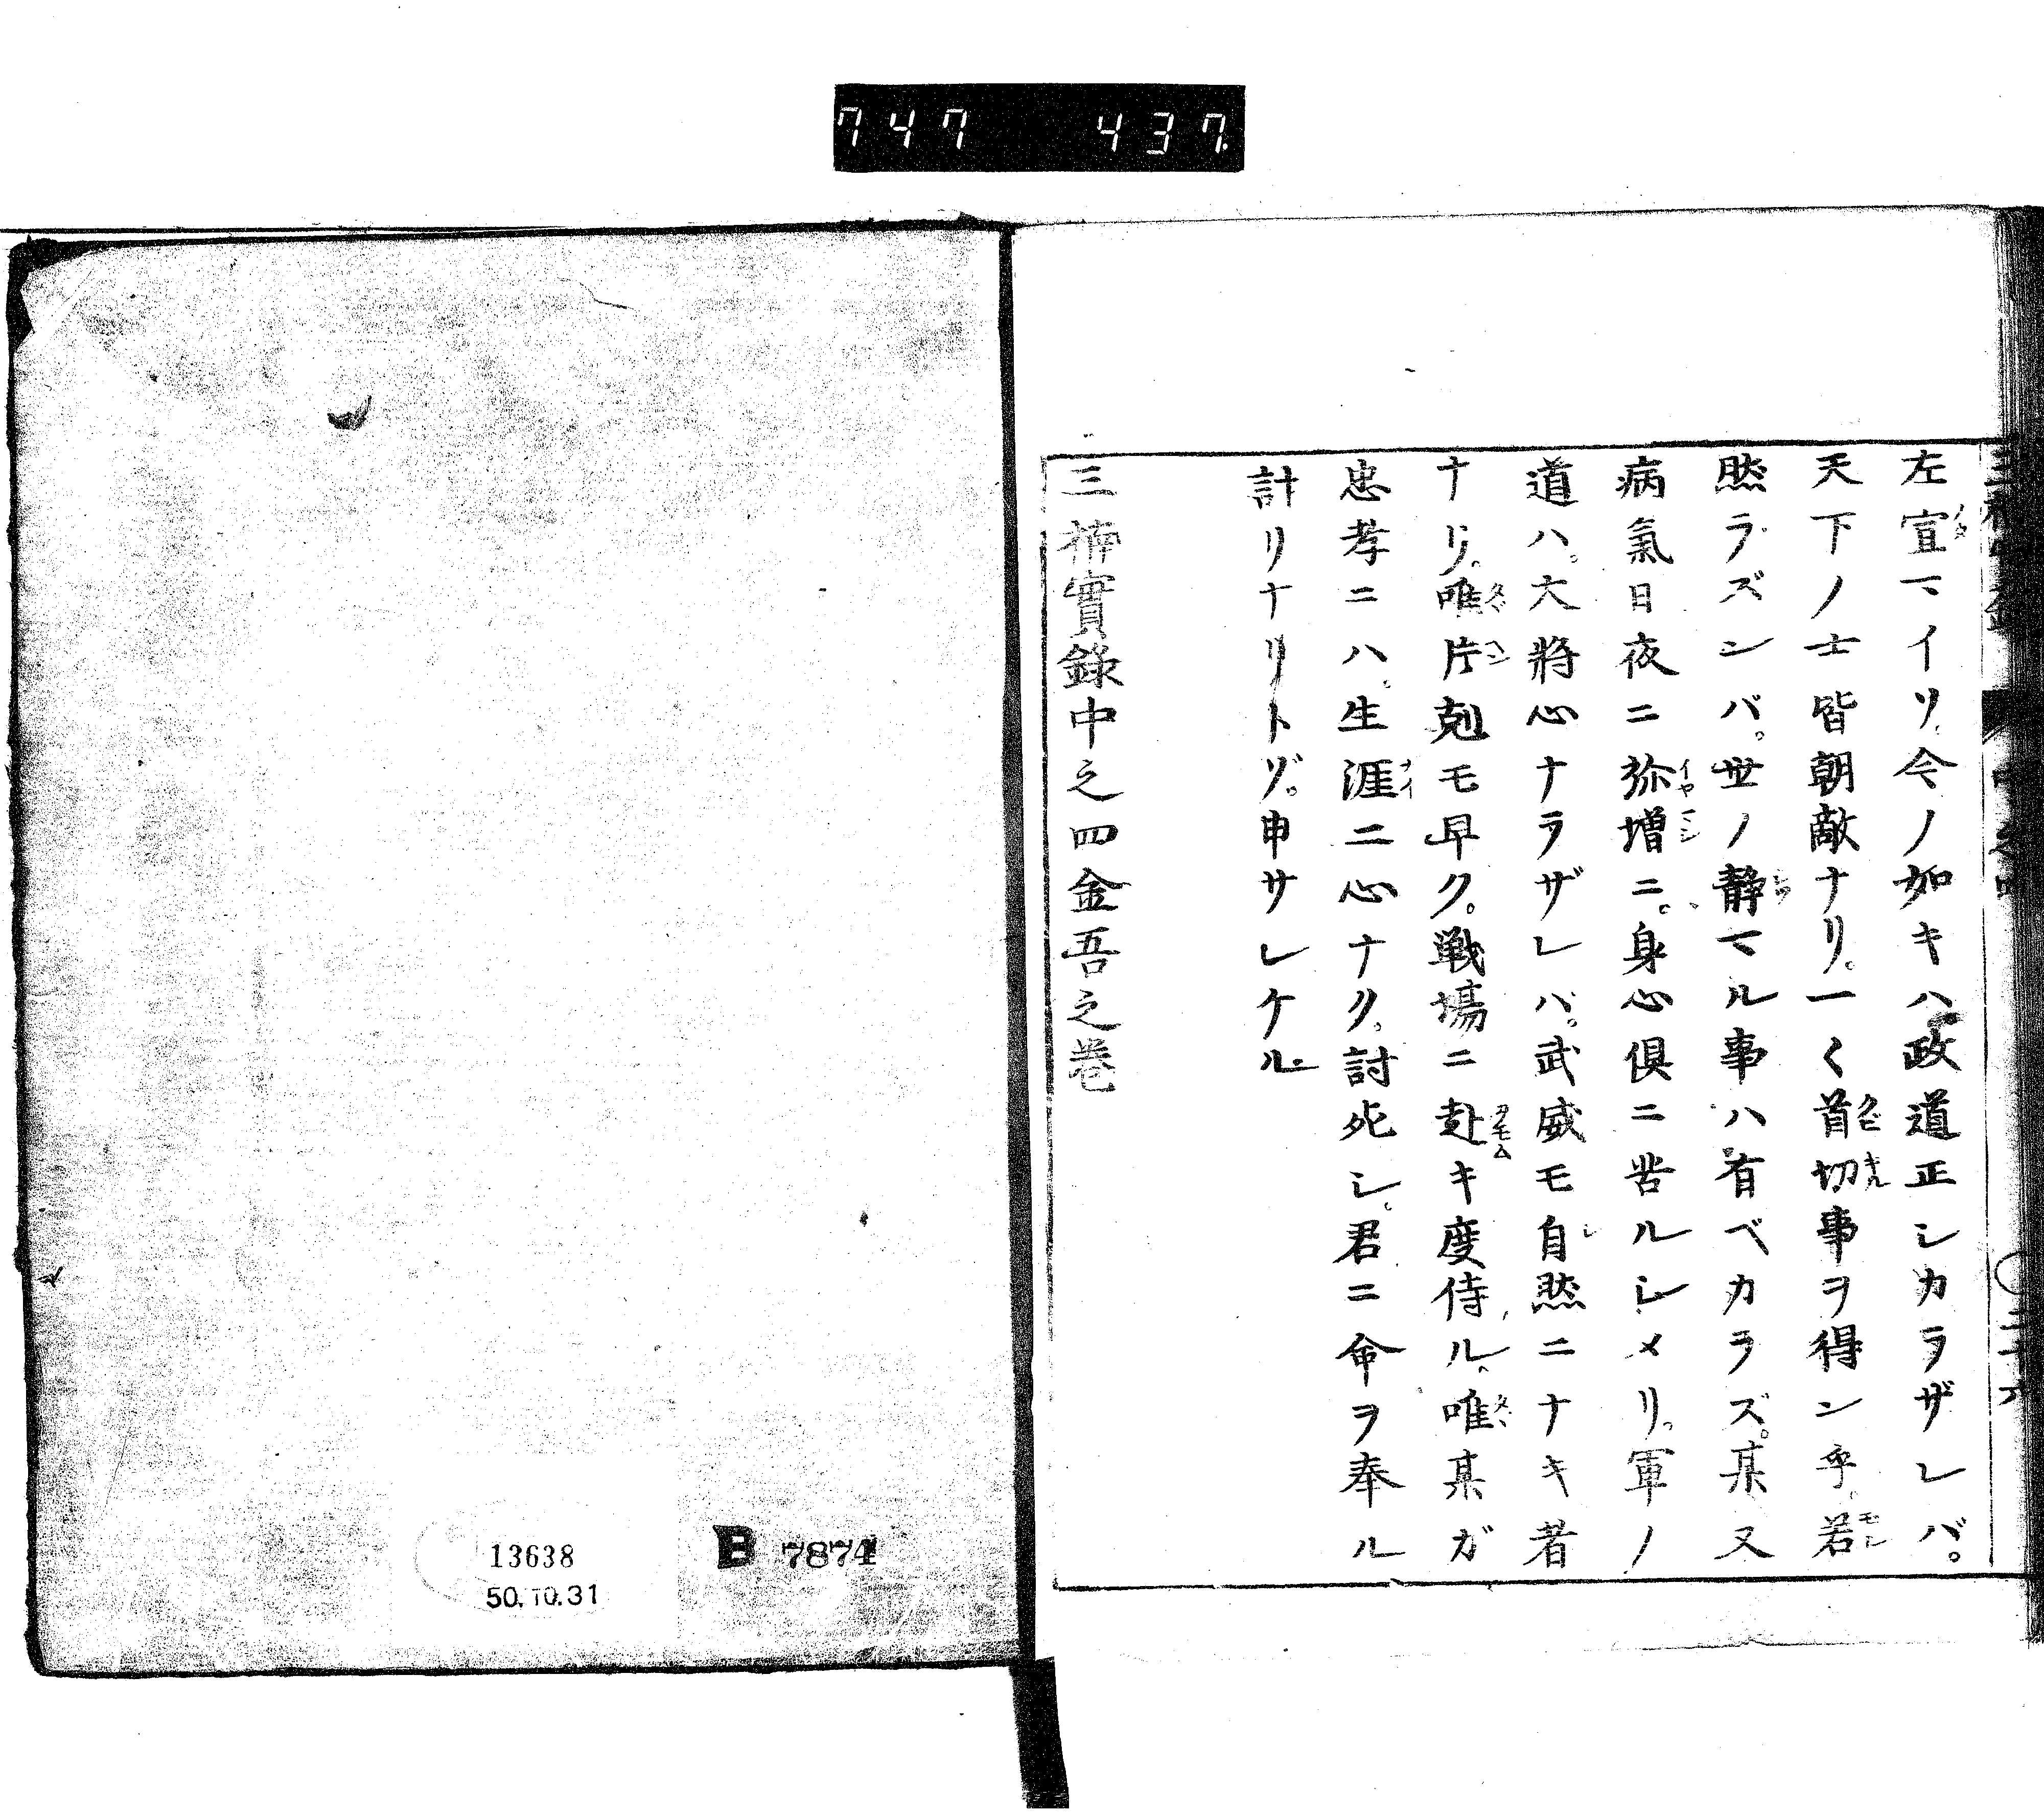 747 437
左宣マイリ。今ノ如キハ政道正シカラザレバ。
天下ノ士皆朝敵ナリ。一〱首切事ヲ得ン乎。若
然ラズンバ。世ノ静マル事ハ有ベカラズ。某又
病氣日夜ニ弥増ニ。身心倶ニ苦ルシメリ。軍ノ
道ハ。大將心ナラザレバ。武威モ自然ニナキ者
ナリ。唯片剋モ早ク。戦場ニ赴キ度侍ル。唯某ガ
忠孝ニハ。生涯二心ナク。討死シ。君ニ命ヲ奉ル
計リナリトゾ。申サレケル
三楠實錄中之四金吾之巻
13638
50.10.31
B 7874